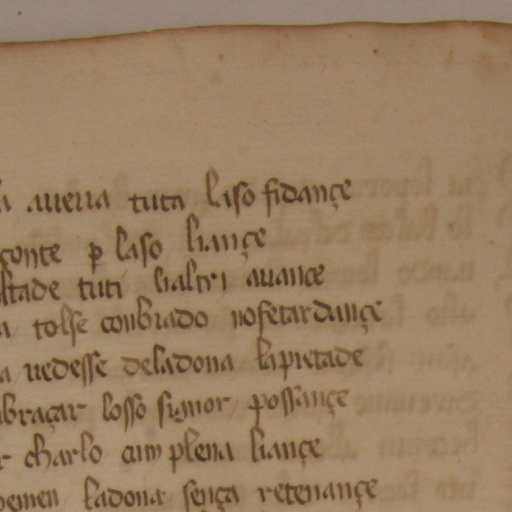 auerra tuta laso fidançe
çonte p laso liançe
ltade tuti lialtri auance
a tolse conbrado nofetardançe
a uedesse deladona lapietade
braçar losso signor possançe
r charlo cum plena liançe
ladona sença retenançe